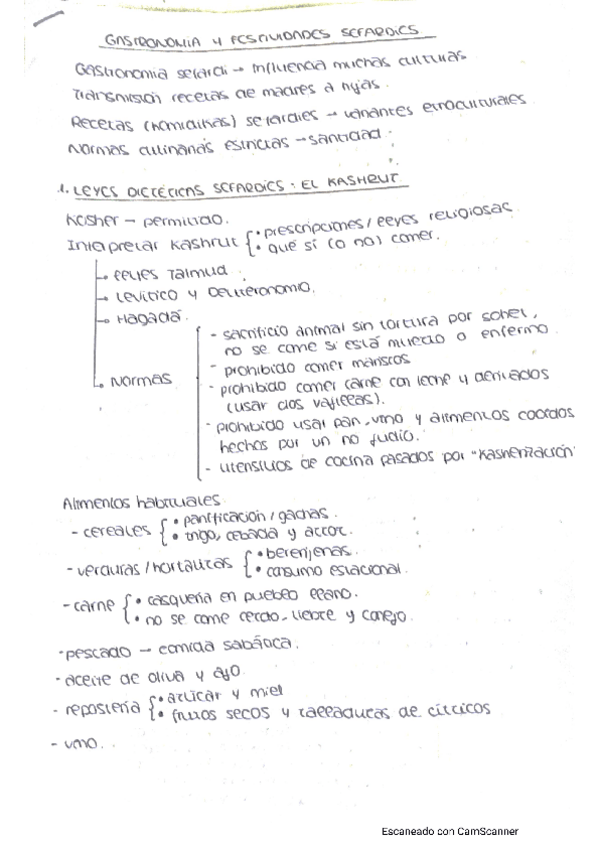 GASTRONOMIA Y FESTIVIDADES SEFARDÍES
Gastronomia sefardi → Influencia muchas culturas
Transmision recetas de madres a hijas.
Recetas (homidihas) sefardíes → variantes etnoculturales
Normas culinarias estrictas → santidad.
1. LEYES DIETÉTICAS SEFARDÍES: EL KASHRUT
Kosher → permitido.
Interpretar Kashrut { • prescripciones / leyes religiosas
• qué sí (o no) comer.
→ leyes Talmud
→ Levítico y Deuteronomio.
→ Hagadá.
→ Normas
- sacrificio animal sin tortura por sohet,
no se come si está muerto o enfermo
- prohibido comer mariscos
- prohibido comer carne con leche y derivados
(usar dos vajillas).
- prohibido usar pan, vino y alimentos cocidos
hechos por un no judío.
- utensilios de cocina pasados por "Kasherización"
Alimentos habituales
- cereales { • panificación / gachas.
• trigo, cebada y arroz.
- verduras / hortalizas { • berenjenas.
• consumo estacional.
- carne { • casquería en pueblo llano.
• no se come cerdo, liebre y conejo.
- pescado → comida sabática.
- aceite de oliva y ajo
- repostería { • azúcar y miel
• frutos secos y ralladuras de cítricos
- vino.
Escaneado con CamScanner